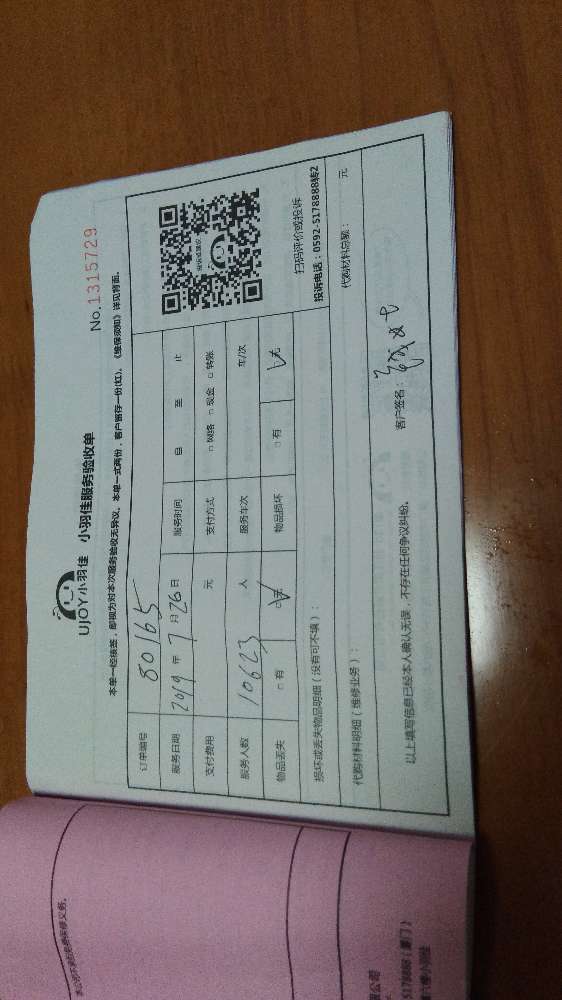 No.1315729
UJOY小羽佳 小羽佳服务验收单
本单一经核签,即视为对本次服务验收无异议。本单一式两份,客户留存一份(红)。《维保须知》详见背面。
订单编号 80165
服务日期 2019 年 7 月 26 日 服务时间 自 至 止
支付费用 元 支付方式 □ 网络 □ 现金 □ 转账
服务人数 10623 人 服务车次 车/次
物品丢失 □ 有 □ 无 物品损坏 □ 有 □ 无
扫码评价或投诉
投诉电话:0592-5178888转2
损坏或丢失物品明细(没有可不填):
代购材料明细(维修业务): 代购材料总额: 元
以上填写信息已经本人确认无误,不存在任何争议纠纷。 客户签名: